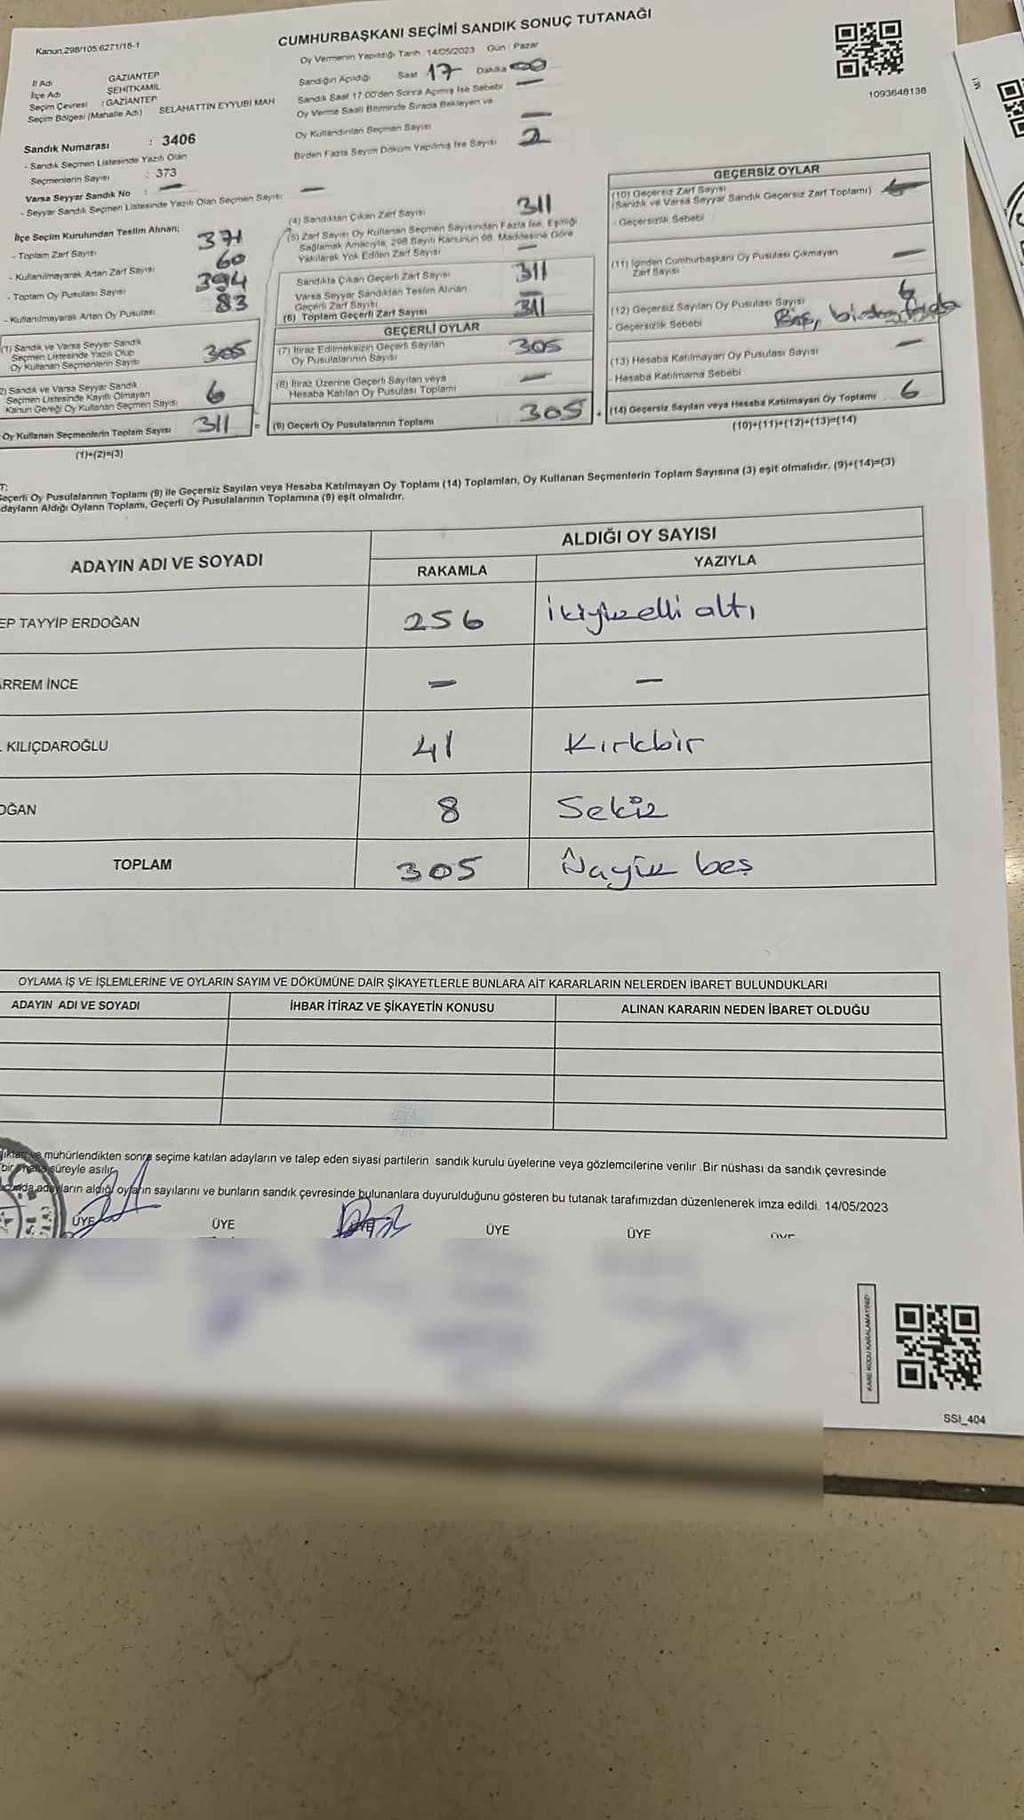 Kanun,298/105,6271/18-1
CUMHURBAŞKANI SEÇİMİ SANDIK SONUÇ TUTANAĞI
Oy Vermenin Yapıldığı Tarih 14/05/2023 Gün : Pazar
İl Adı GAZİANTEP
İlçe Adı ŞEHİTKAMİL
Seçim Çevresi : GAZİANTEP
Seçim Bölgesi (Mahalle Adı) SELAHATTİN EYYUBİ MAH
Sandığın Açıldığı Saat 17 Dakika 00
Sandık Saat 17.00'den Sonra Açılmış İse Sebebi —
Oy Verme Saati Bitiminde Sırada Bekleyen ve
Oy Kullandırılan Seçmen Sayısı —
Birden Fazla Sayım Döküm Yapılmış İse Sayısı 2
1093648138
Sandık Numarası : 3406
- Sandık Seçmen Listesinde Yazılı Olan
Seçmenlerin Sayısı : 373
Varsa Seyyar Sandık No : —
- Seyyar Sandık Seçmen Listesinde Yazılı Olan Seçmen Sayısı: —
İlçe Seçim Kurulundan Teslim Alınan;
- Toplam Zarf Sayısı 371
- Kullanılmayarak Artan Zarf Sayısı 60
- Toplam Oy Pusulası Sayısı 394
- Kullanılmayarak Artan Oy Pusulası 83
(1) Sandık ve Varsa Seyyar Sandık
Seçmen Listesinde Yazılı Olup
Oy Kullanan Seçmenlerin Sayısı 305
2) Sandık ve Varsa Seyyar Sandık
Seçmen Listesinde Kayıtlı Olmayan
Kanun Gereği Oy Kullanan Seçmen Sayısı 6
Oy Kullanan Seçmenlerin Toplam Sayısı 311
(1)+(2)=(3)
(4) Sandıktan Çıkan Zarf Sayısı 311
(5) Zarf Sayısı Oy Kullanan Seçmen Sayısından Fazla İse, Eşitliği
Sağlamak Amacıyla, 298 Sayılı Kanunun 98. Maddesine Göre
Yakılarak Yok Edilen Zarf Sayısı —
Sandıkta Çıkan Geçerli Zarf Sayısı 311
Varsa Seyyar Sandıktan Teslim Alınan
Geçerli Zarf Sayısı —
(6) Toplam Geçerli Zarf Sayısı 311
GEÇERLİ OYLAR
(7) İtiraz Edilmeksizin Geçerli Sayılan
Oy Pusulalarının Sayısı 305
(8) İtiraz Üzerine Geçerli Sayılan veya
Hesaba Katılan Oy Pusulası Toplamı —
(9) Geçerli Oy Pusulalarının Toplamı 305
GEÇERSİZ OYLAR
(10) Geçersiz Zarf Sayısı
(Sandık ve Varsa Seyyar Sandık Geçersiz Zarf Toplamı)
- Geçersizlik Sebebi
(11) İçinden Cumhurbaşkanı Oy Pusulası Çıkmayan
Zarf Sayısı —
(12) Geçersiz Sayılan Oy Pusulası Sayısı 6
- Geçersizlik Sebebi Boş,
(13) Hesaba Katılmayan Oy Pusulası Sayısı —
- Hesaba Katılmama Sebebi
(14) Geçersiz Sayılan veya Hesaba Katılmayan Oy Toplamı 6
(10)+(11)+(12)+(13)=(14)
T:
Geçerli Oy Pusulalarının Toplamı (9) ile Geçersiz Sayılan veya Hesaba Katılmayan Oy Toplamı (14) Toplamları, Oy Kullanan Seçmenlerin Toplam Sayısına (3) eşit olmalıdır. (9)+(14)=(3)
dayların Aldığı Oyların Toplamı, Geçerli Oy Pusulalarının Toplamına (9) eşit olmalıdır.
ADAYIN ADI VE SOYADI
ALDIĞI OY SAYISI
RAKAMLA YAZIYLA
EP TAYYİP ERDOĞAN 256 ikiyüzelli altı
ARREM İNCE — —
L KILIÇDAROĞLU 41 Kırkbir
OĞAN 8 Sekiz
TOPLAM 305 Üçyüz beş
OYLAMA İŞ VE İŞLEMLERİNE VE OYLARIN SAYIM VE DÖKÜMÜNE DAİR ŞİKAYETLERLE BUNLARA AİT KARARLARIN NELERDEN İBARET BULUNDUKLARI
ADAYIN ADI VE SOYADI İHBAR İTİRAZ VE ŞİKAYETİN KONUSU ALINAN KARARIN NEDEN İBARET OLDUĞU
mühürlendikten sonra seçime katılan adayların ve talep eden siyasi partilerin sandık kurulu üyelerine veya gözlemcilerine verilir .Bir nüshası da sandık çevresinde
bir hafta süreyle asılır.
adayların aldığı oyların sayılarını ve bunların sandık çevresinde bulunanlara duyurulduğunu gösteren bu tutanak tarafımızdan düzenlenerek imza edildi. 14/05/2023
ÜYE ÜYE ÜYE ÜYE ÜYE ÜYE
KARE KODU KARALAMAYINIZ!
SSI_404